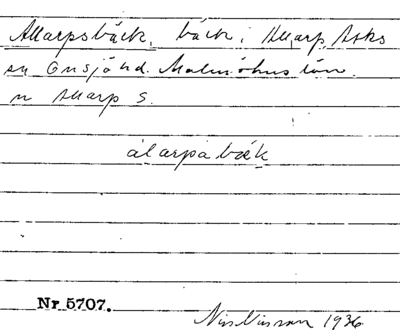 Allarpsbäck, bäck i Allarp, Asks
sn Onsjö hd. Malmöhus län.
n Allarp S.
alarpabæk
Nr 5707.
Nils Nilsson 1936